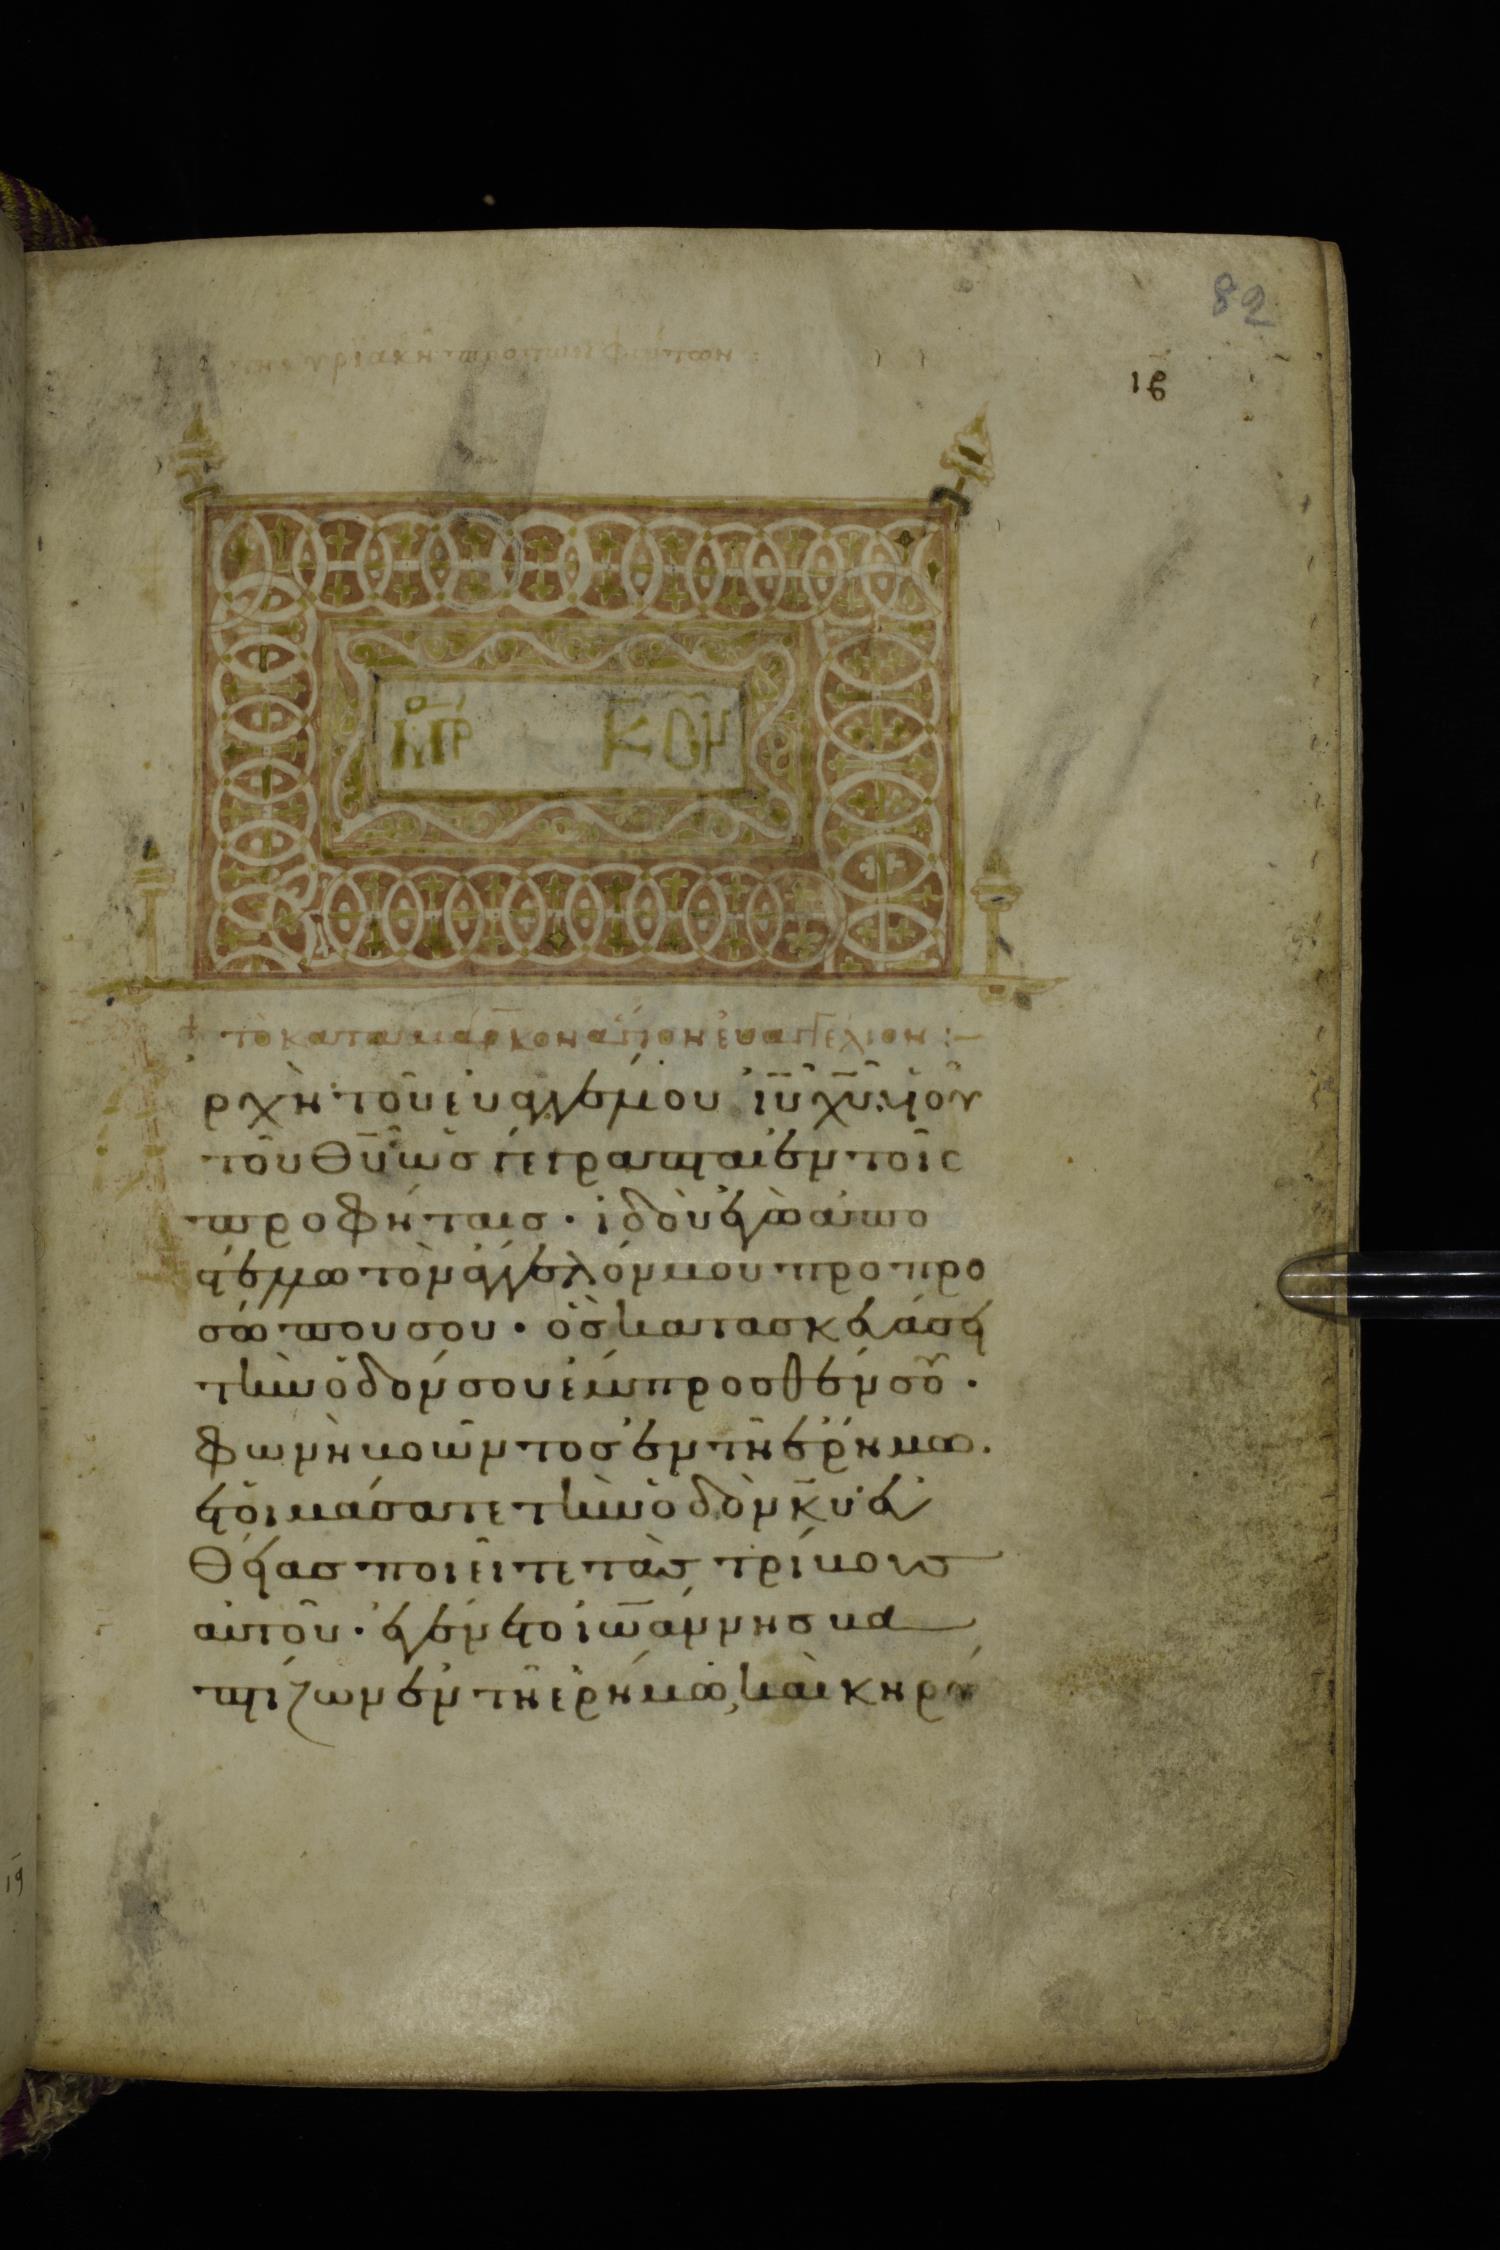 82
κυριακῆ πρὸ τῶν φώτων :
ιβ
Μρ ΚΟΝ
τὸ κατα μάρκον ἅγιον ἐυαγγέλιον :—
ρχὴ τοῦ ἐυαγγελίου ἰῦ χῦ υἱοῦ
τοῦ θῦ ὡσ γέγραπται ἐν τοῖς
προφήταισ · ἰδοὺ ἐγὼ ἀπο
στέλλω τὸν ἄγγελόν μου προ προ
σώπου σου · ὃσ κατασκευάσει
τὴν ὁδόν σου ἔμπροσθέν σοῦ ·
φωνὴ βοῶντοσ ἐν τῆ ἐρήμω ·
ἑτοιμάσατε τὴν ὁδὸν κῦ εὐ
θείασ ποιεῖτε τὰσ τρίβουσ
αὐτοῦ · ἐγένετο ἰωάννησ βα
πτίζων ἐν τῆ ἐρήμω, καὶ κηρύ